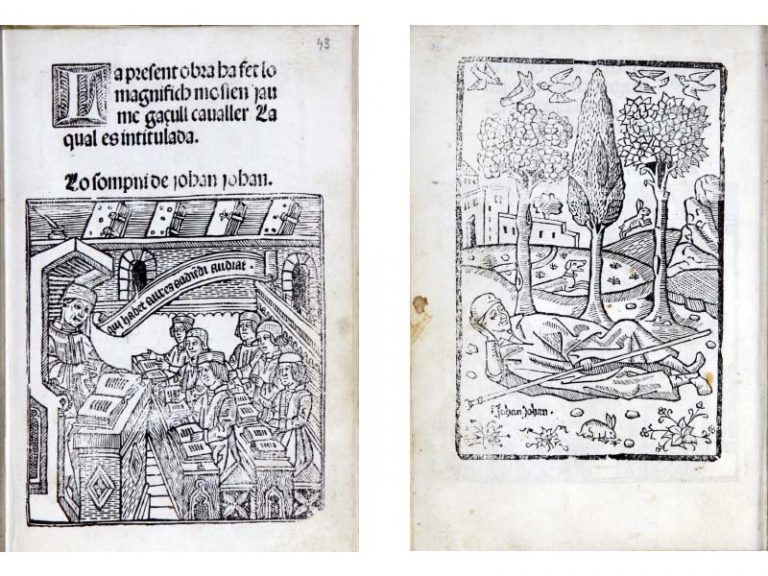 43
La present obra ha fet lo
magnifich mossen jau
me gaçull cavaller La
qual es intitulada.
Lo sompni de johan johan.
qui habet aures audiedi audiat.
Johan johan.